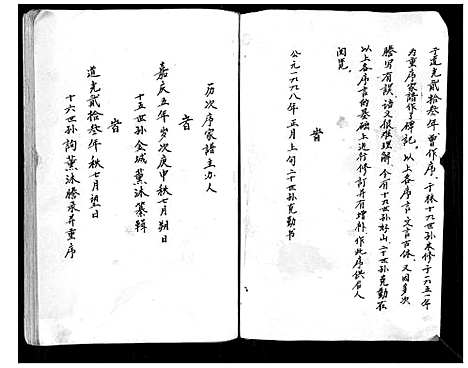 于道光贰拾叁年曾作序。于秩十九世孙本修于一九五一年
为重序家谱作了碑记。以上各序言，文言古体。又因多次
謄写有误，语义很难理解。今有十九世孙好山，二十世孙克勤在
以上各序言的基础上进行修订并有增补，作此序供后人
阅览。
旹
公元一九九八年正月上旬二十世孙克勤书
历次序家谱主办人
旹
嘉庆五年岁次庚申秋七月朔日
十五世孙金城薰沐纂辑
旹
道光贰拾叁年秩七月望日
十六世孙詢薰沐謄录并重序